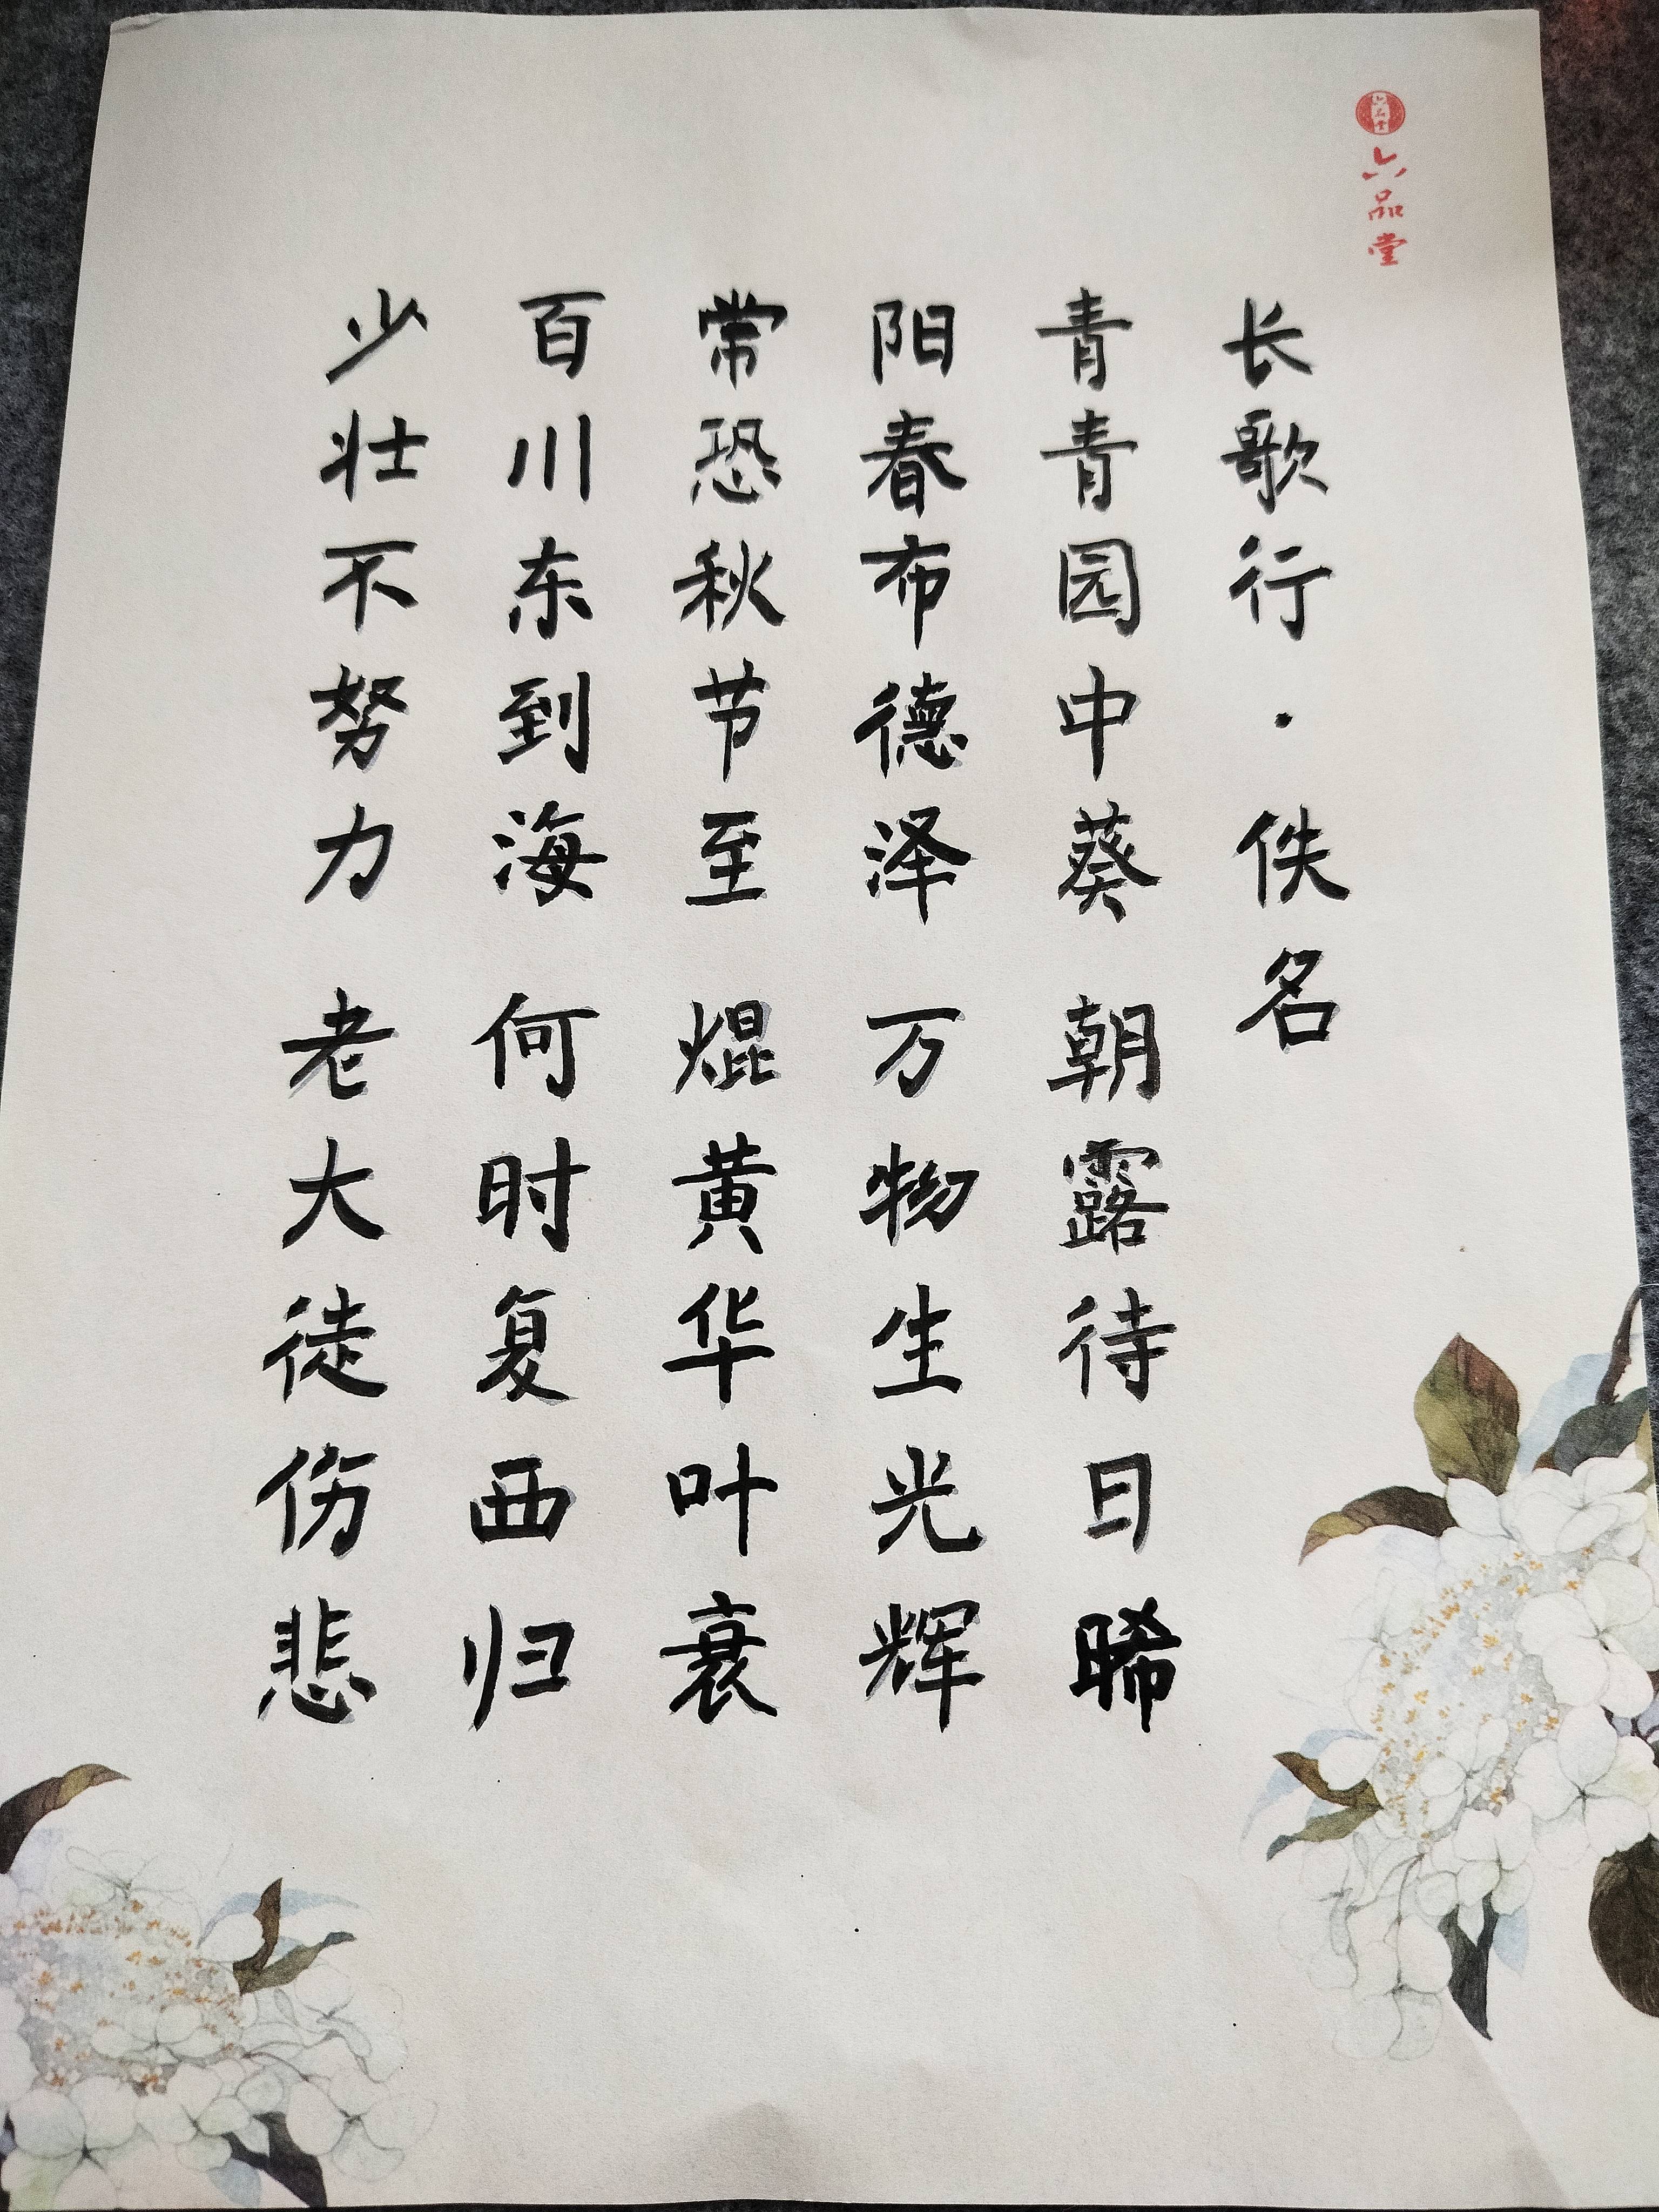 六品堂
长歌行·佚名
青青园中葵 朝露待日晞
阳春布德泽 万物生光辉
常恐秋节至 焜黄华叶衰
百川东到海 何时复西归
少壮不努力 老大徒伤悲